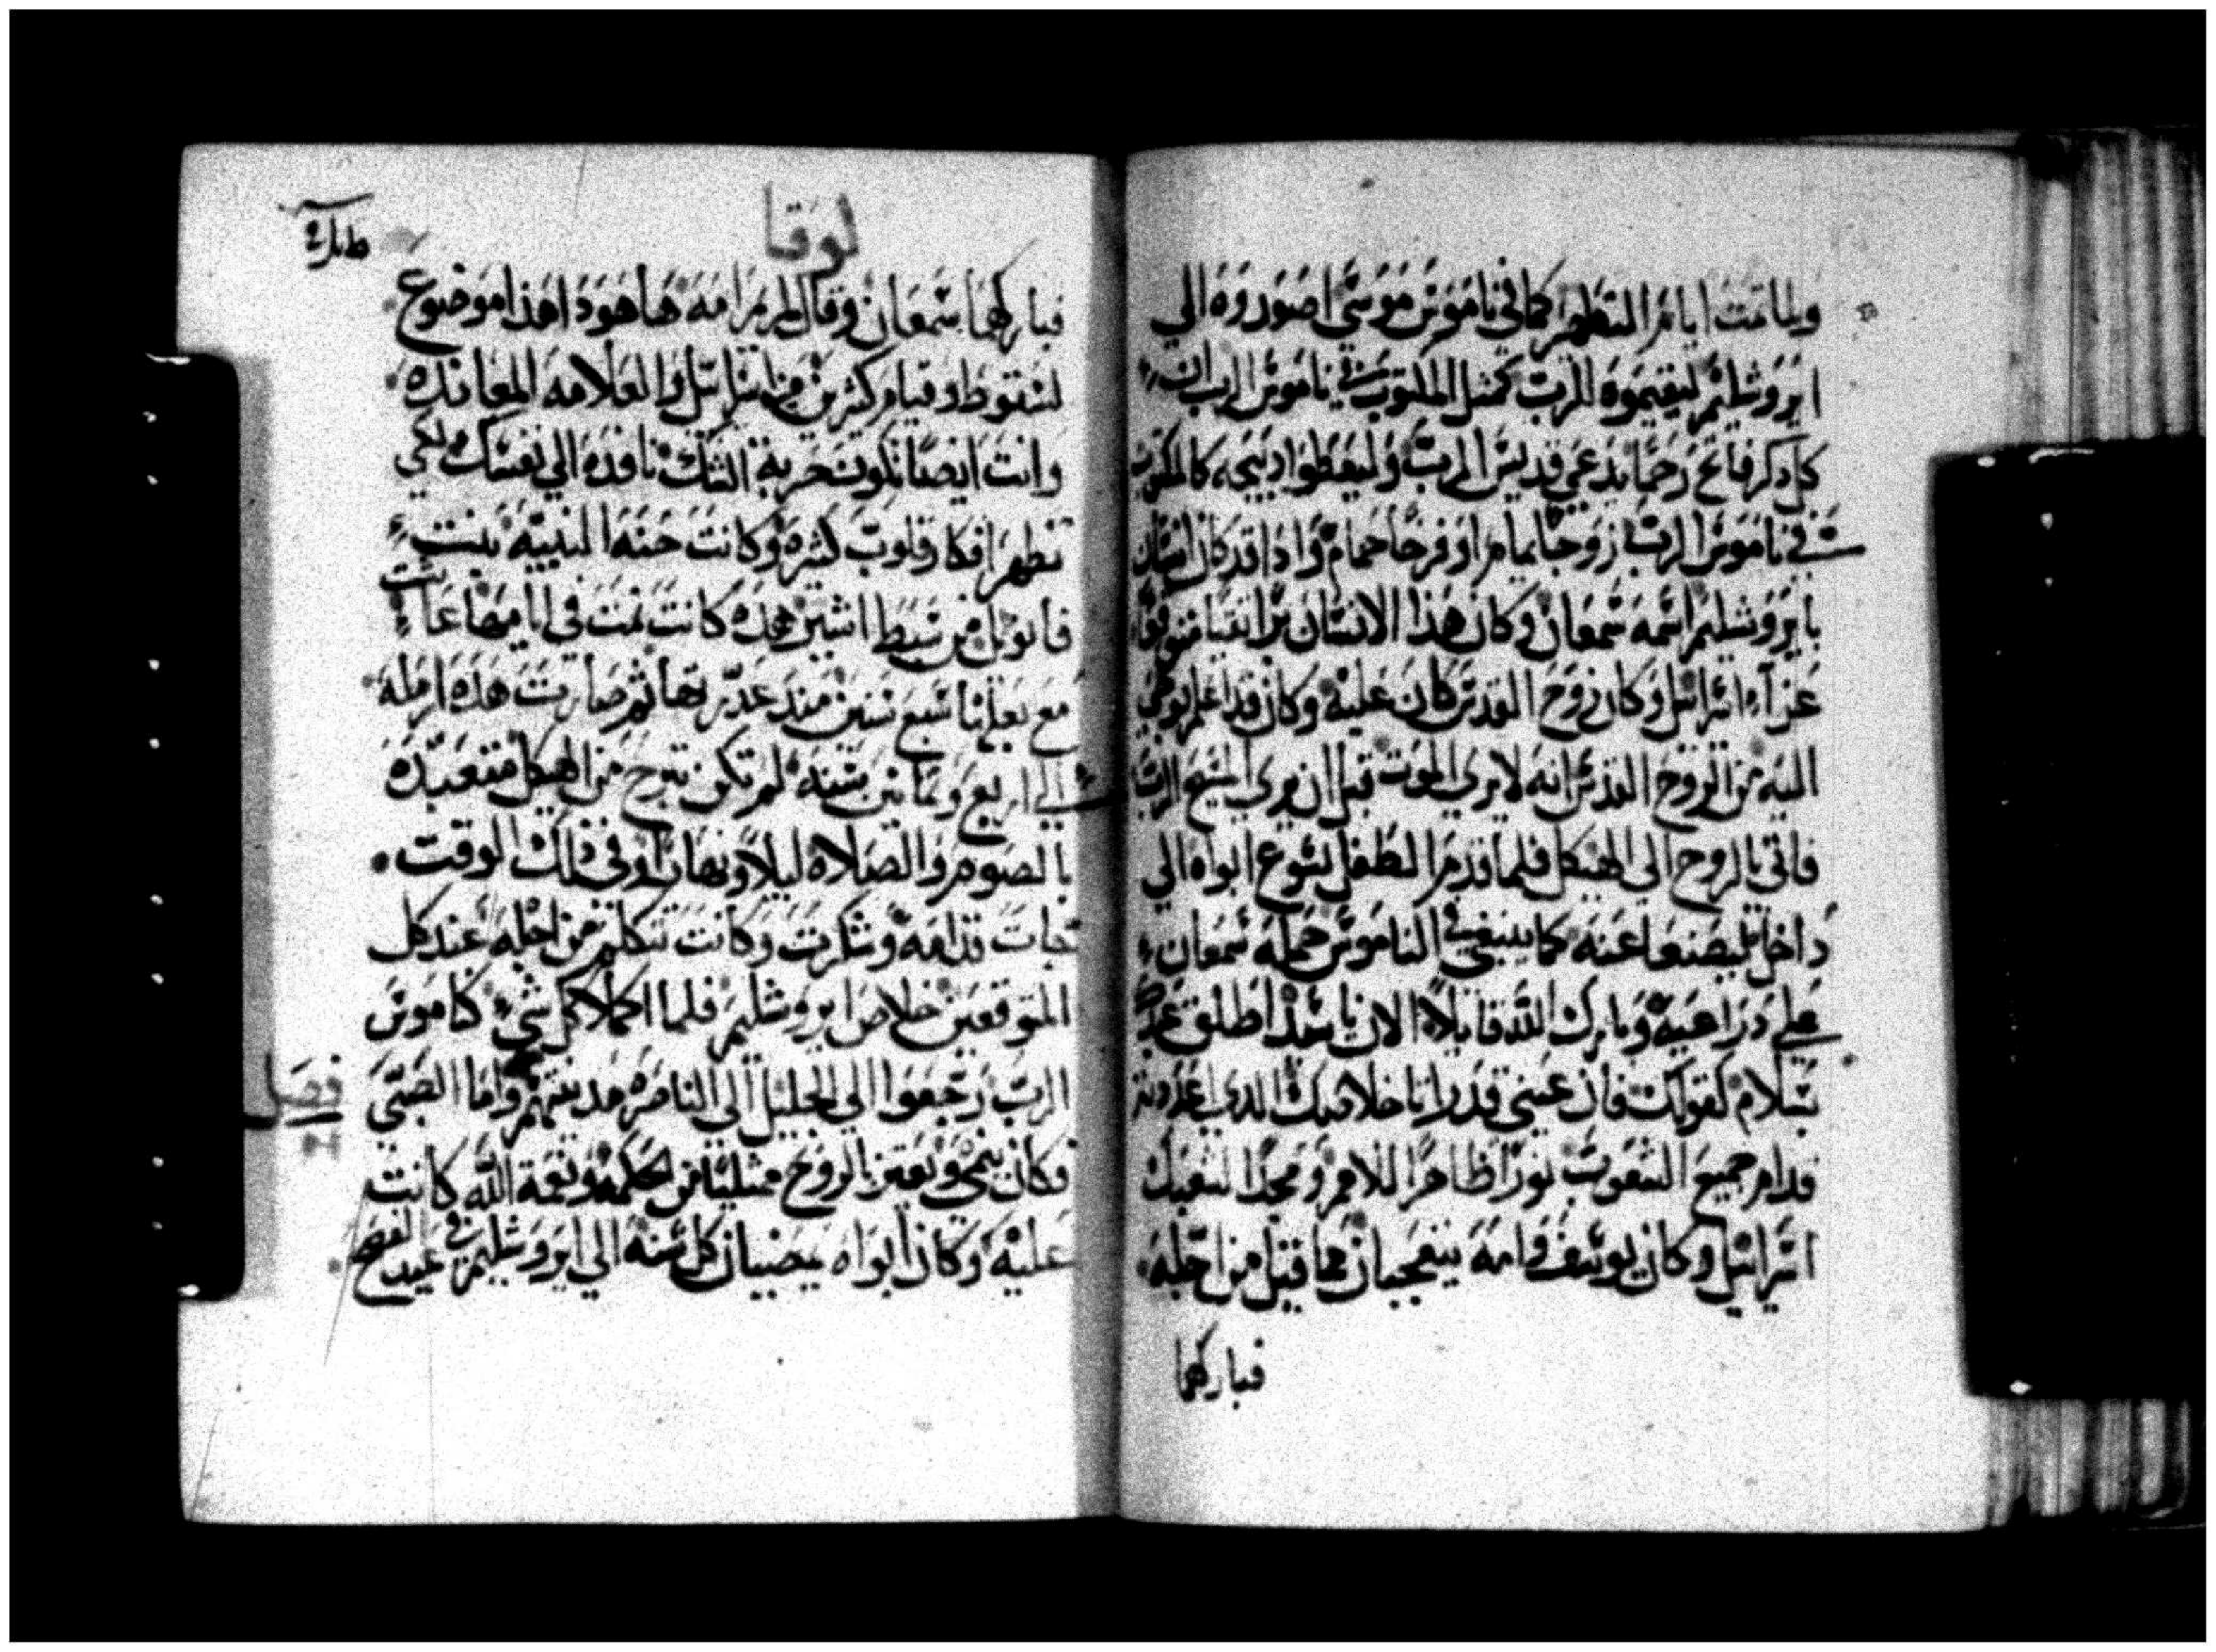 ولما تمت ايام التطهير كما في ناموس موسي اصوروه الي
ايروشليم ليقيموه للرب كمثل المكتوب في ناموس الرب ان
كل دكر فاتح رحما يدعي قديس الرب وليعطوا دبيحه كالمكتوب
في ناموس الرب زوجا يمام او فرخا حمام واداقد كان انسان
بايروشليم اسمه سمعان وكان هذا الانسان برا تقيا متوقعا
عزاء اسرائيل وكان روح القدس كان عليه وكان قد اعلم بوحي
اليه من الروح القدس انه لا يري الموت قبل ان يري المسيح الرب
فاتي بالروح الي الهيكل فلما قدم الطفل يسوع ابواه الي
داخل ليصنعا عنه كما ينبغي في الناموس حمله سمعان
علي دراعيه وبارك الله قايلا الان ياسيد اطلق عبدك
بسلام كقولك فان عيني قد راتا خلاصك الدي اعددته
قدام جميع الشعوب نورا ظاهرا للامم ومجدا لشعبك
اسرائيل وكان يوسف وامه يتعجبان مما قيل من اجله
فباركهما
لوقا
فباركهما سمعان وقال لمريم امه ها هودا هذا موضوع
لسقوط وقيام كثيرين من اسرائيل والعلامه المعانده
وانت ايضا تكون حربة الشك نافده الي نفسك لكي
تظهر افكار قلوب كثيره وكانت حنه النبيه بنت
فانويل من سبط اشير هذه كانت تمت في ايامها عاشت
مع بعلها سبع سنين مند عدريتها ثم صارت هذه ارمله
الي اربع وثمانين سنه لم تكن تبرح من الهيكل متعبده
بالصوم والصلاه ليلا ونهارا وفي ذلك الوقت
جات قدامه وشكرت وكانت تتكلم من اجله عند كل
المتوقعين خلاص ايروشليم فلما اكملا كل شيء كناموس
الرب رجعوا الي الجليل الي الناصره مدينتهم واما الصبي
فصل
فكان ينمي ويعتز بالروح ممتليا من الحكمه ونعمة الله كانت
عليه وكان ابواه يمضيان كل سنه الي ايروشليم في عيد الفصح